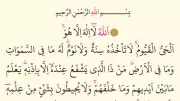 بِسْمِ اللّٰهِ الرَّحْمٰنِ الرَّحِيْمِ
اَللّٰهُ لَآ اِلٰهَ اِلَّا هُوَ
اَلْحَيُّ الْقَيُّوْمُ لَا تَأْخُذُهٗ سِنَةٌ وَّلَا نَوْمٌ لَهٗ مَا فِى السَّمٰوٰتِ
وَمَا فِى الْاَرْضِ مَنْ ذَا الَّذِىْ يَشْفَعُ عِنْدَهٗٓ اِلَّا بِاِذْنِهٖ يَعْلَمُ
مَا بَيْنَ اَيْدِيْهِمْ وَمَا خَلْفَهُمْ وَلَا يُحِيْطُوْنَ بِشَىْءٍ مِّنْ عِلْمِهٖٓ